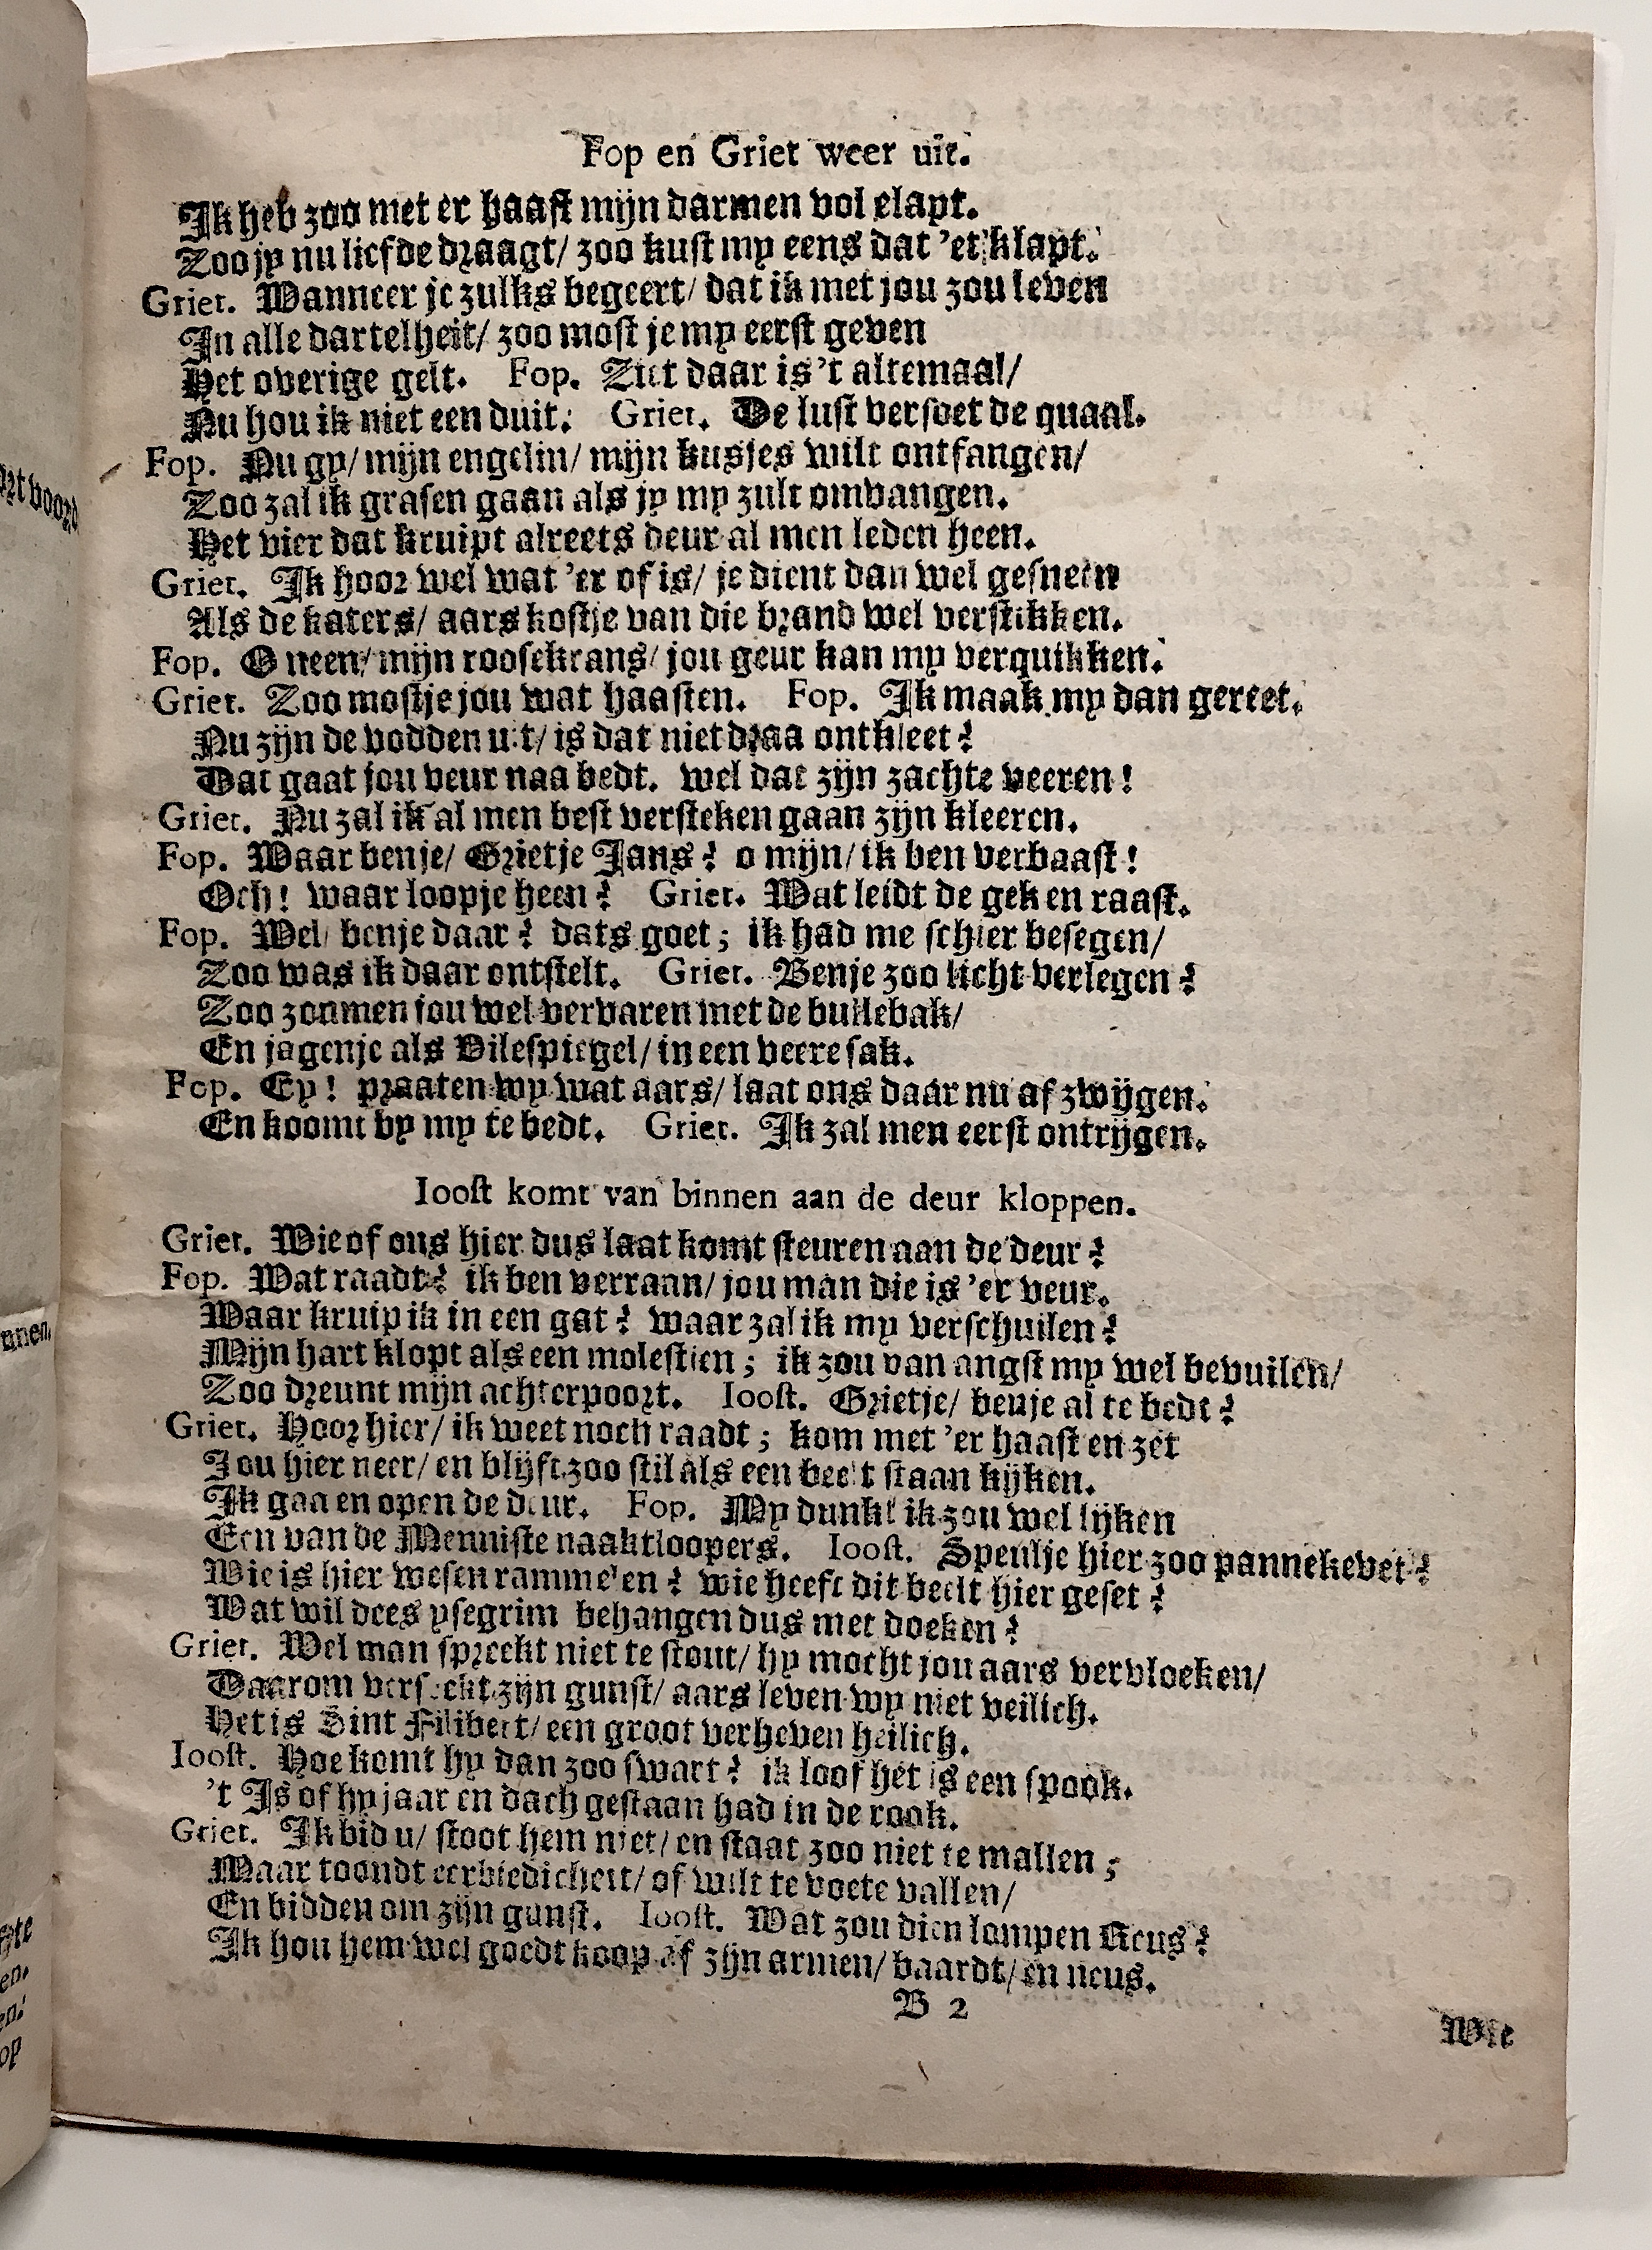 Fop en Griet weer uit.
Ik heb zoo met er haast mijn darmen vol elapt.
Zoo jy nu liefde draagt/ zoo kust my eens dat 'et klapt.
Griet. Wanneer je zulks begeert/ dat ik met jou zou leven
In alle dartelheit/ zoo most je my eerst geven
Het overige gelt. Fop. Ziet daar is 't altemaal/
Nu hou ik niet een duit. Griet. De lust versoet de quaal.
Fop. Nu gy/ mijn engelin/ mijn kusjes wilt ontfangen/
Zoo zal ik grasen gaan als jy my zult omvangen.
Het vier dat kruipt alreets deur al men leden heen.
Griet. Ik hoor wel wat 'er of is/ je dient dan wel gesneen
Als de katers/ aars kostje van die brand wel verstikken.
Fop. O neen/ mijn roosekrans/ jou geur kan my verquikken.
Griet. Zoo mostje jou wat haasten. Fop. Ik maak my dan gereet.
Nu zijn de vodden uit/ is dat niet draa ontkleet?
Dat gaat jou veur naa bedt. wel dat zijn zachte veeren!
Griet. Nu zal ik al men best versteken gaan zijn kleeren.
Fop. Waar benje/ Grietje Jans? o mijn/ ik ben verbaast!
Och! waar loopje heen? Griet. Wat leidt de gek en raast.
Fop. Wel/ benje daar? dats goet; ik had me schier besegen/
Zoo was ik daar ontstelt. Griet. Benje zoo licht verlegen?
Zoo zonmen jou wel vervaren met de bullebak/
En jagenje als Vilespiegel/ in een veere sak.
Fop. Ey! praaten wy wat aars/ laat ons daar nu af zwijgen.
En koomt by my te bedt. Griet. Ik zal men eerst ontrijgen.
Ioost komt van binnen aan de deur kloppen.
Griet. Wie of ons hier dus laat komt steuren aan de deur?
Fop. Wat raadt? ik ben verraan/ jou man die is 'er veur.
Waar kruip ik in een gat? waar zal ik my verschuilen?
Mijn hart klopt als een molestien; ik zou van angst my wel bevuilen/
Zoo dreunt mijn achterpoort. Ioost. Grietje/ benje al te bedt?
Griet. Hoor hier/ ik weet noch raadt; kom met 'er haast en zet
Jou hier neer/ en blijft zoo stil als een beelt staan kijken.
Ik gaa en open de deur. Fop. My dunkt ik zou wel lijken
Een van de Menniste naaktloopers. Ioost. Speulje hier zoo pannekevet?
Wie is hier wesen rammelen? wie heeft dit beelt hier geset?
Wat wil dees ysegrim behangen dus met doeken?
Griet. Wel man spreekt niet te stout/ hy mocht jou aars vervloeken/
Daarom versoekt zijn gunst/ aars leven wy niet veilich.
Het is Sint Filibert/ een groot verheven heilich.
Ioost. Hoe komt hy dan zoo swart? ik loof het is een spook.
't Is of hy jaar en dach gestaan had in de rook.
Griet. Ik bid u/ stoot hem niet/ en staat zoo niet te mallen;
Maar toondt eerbiedicheit/ of wilt te voete vallen/
En bidden om zijn gunst. Ioost. Wat zou dien lompen Reus?
Ik hou hem wel goedt koop af zijn armen/ baardt/ en neus.
B 2
Wie